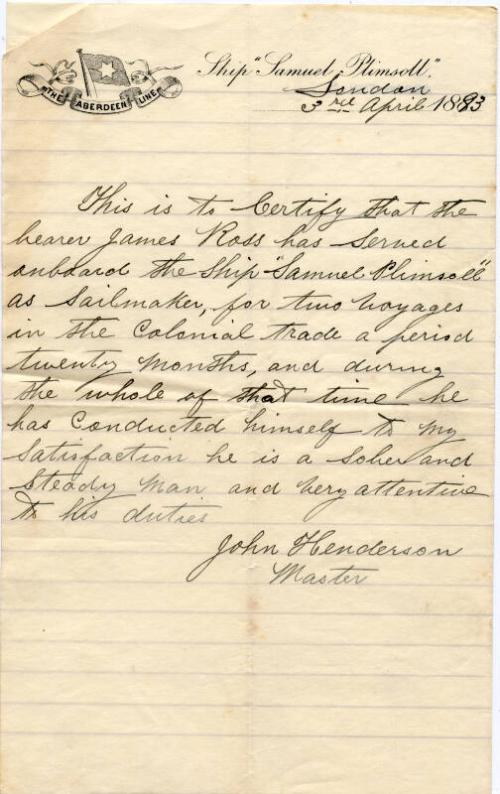 THE ABERDEEN LINE
Ship "Samuel Plimsoll".
London
3rd April 1893
This is to Certify that the
bearer James Ross has Served
onboard the Ship "Samuel Plimsoll"
as Sailmaker, for two Voyages
in the Colonial trade a period
twenty Months, and during
the whole of that time he
has Conducted himself to my
Satisfaction he is a Sober and
Steady Man and Very attentive
to his duties
John Henderson
Master